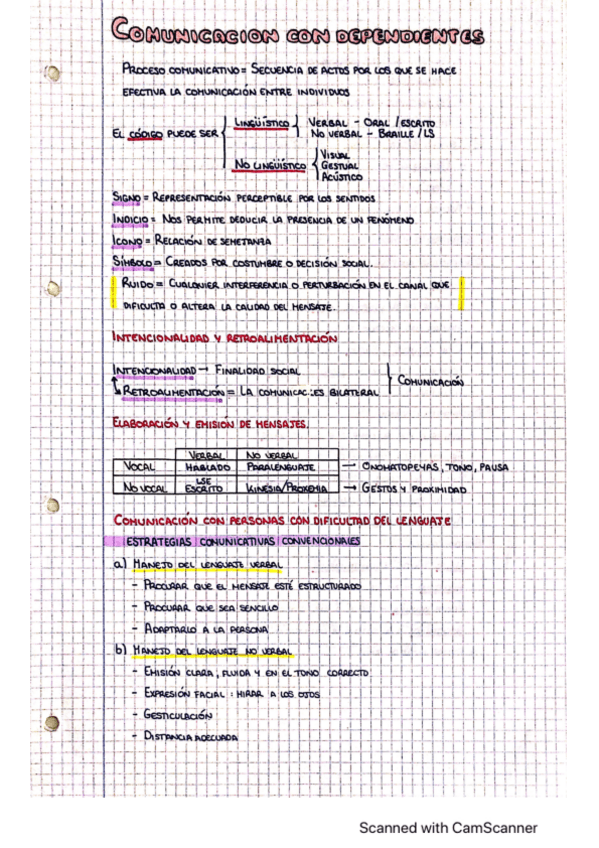 COMUNICACION CON DEPENDIENTES
PROCESO COMUNICATIVO = SECUENCIA DE ACTOS POR LOS QUE SE HACE
EFECTIVA LA COMUNICACIÓN ENTRE INDIVIDUOS
EL CÓDIGO PUEDE SER
LINGÜÍSTICO
VERBAL - ORAL / ESCRITO
NO VERBAL - BRAILLE / LS
NO LINGÜÍSTICO
VISUAL
GESTUAL
ACÚSTICO
SIGNO = REPRESENTACIÓN PERCEPTIBLE POR LOS SENTIDOS
INDICIO = NOS PERMITE DEDUCIR LA PRESENCIA DE UN FENÓMENO
ICONO = RELACIÓN DE SEMEJANZA
SÍMBOLO = CREADOS POR COSTUMBRE O DECISIÓN SOCIAL.
RUIDO = CUALQUIER INTERFERENCIA O PERTURBACIÓN EN EL CANAL QUE
DIFICULTA O ALTERA LA CALIDAD DEL MENSAJE.
INTENCIONALIDAD Y RETROALIMENTACIÓN
INTENCIONALIDAD → FINALIDAD SOCIAL
RETROALIMENTACIÓN = LA COMUNICAC. ES BILATERAL
COMUNICACIÓN
ELABORACIÓN Y EMISIÓN DE MENSAJES.
VERBAL NO VERBAL
VOCAL HABLADO PARALENGUAJE → ONOMATOPEYAS, TONO, PAUSA
NO VOCAL LSE ESCRITO KINESIA/PROXEMIA → GESTOS Y PROXIMIDAD
COMUNICACIÓN CON PERSONAS CON DIFICULTAD DEL LENGUAJE
ESTRATEGIAS COMUNICATIVAS CONVENCIONALES
a) MANEJO DEL LENGUAJE VERBAL
- PROCURAR QUE EL MENSAJE ESTÉ ESTRUCTURADO
- PROCURAR QUE SEA SENCILLO
- ADAPTARLO A LA PERSONA
b) MANEJO DEL LENGUAJE NO VERBAL
- EMISIÓN CLARA, FLUIDA Y EN EL TONO CORRECTO
- EXPRESIÓN FACIAL : MIRAR A LOS OJOS
- GESTICULACIÓN
- DISTANCIA ADECUADA
Scanned with CamScanner